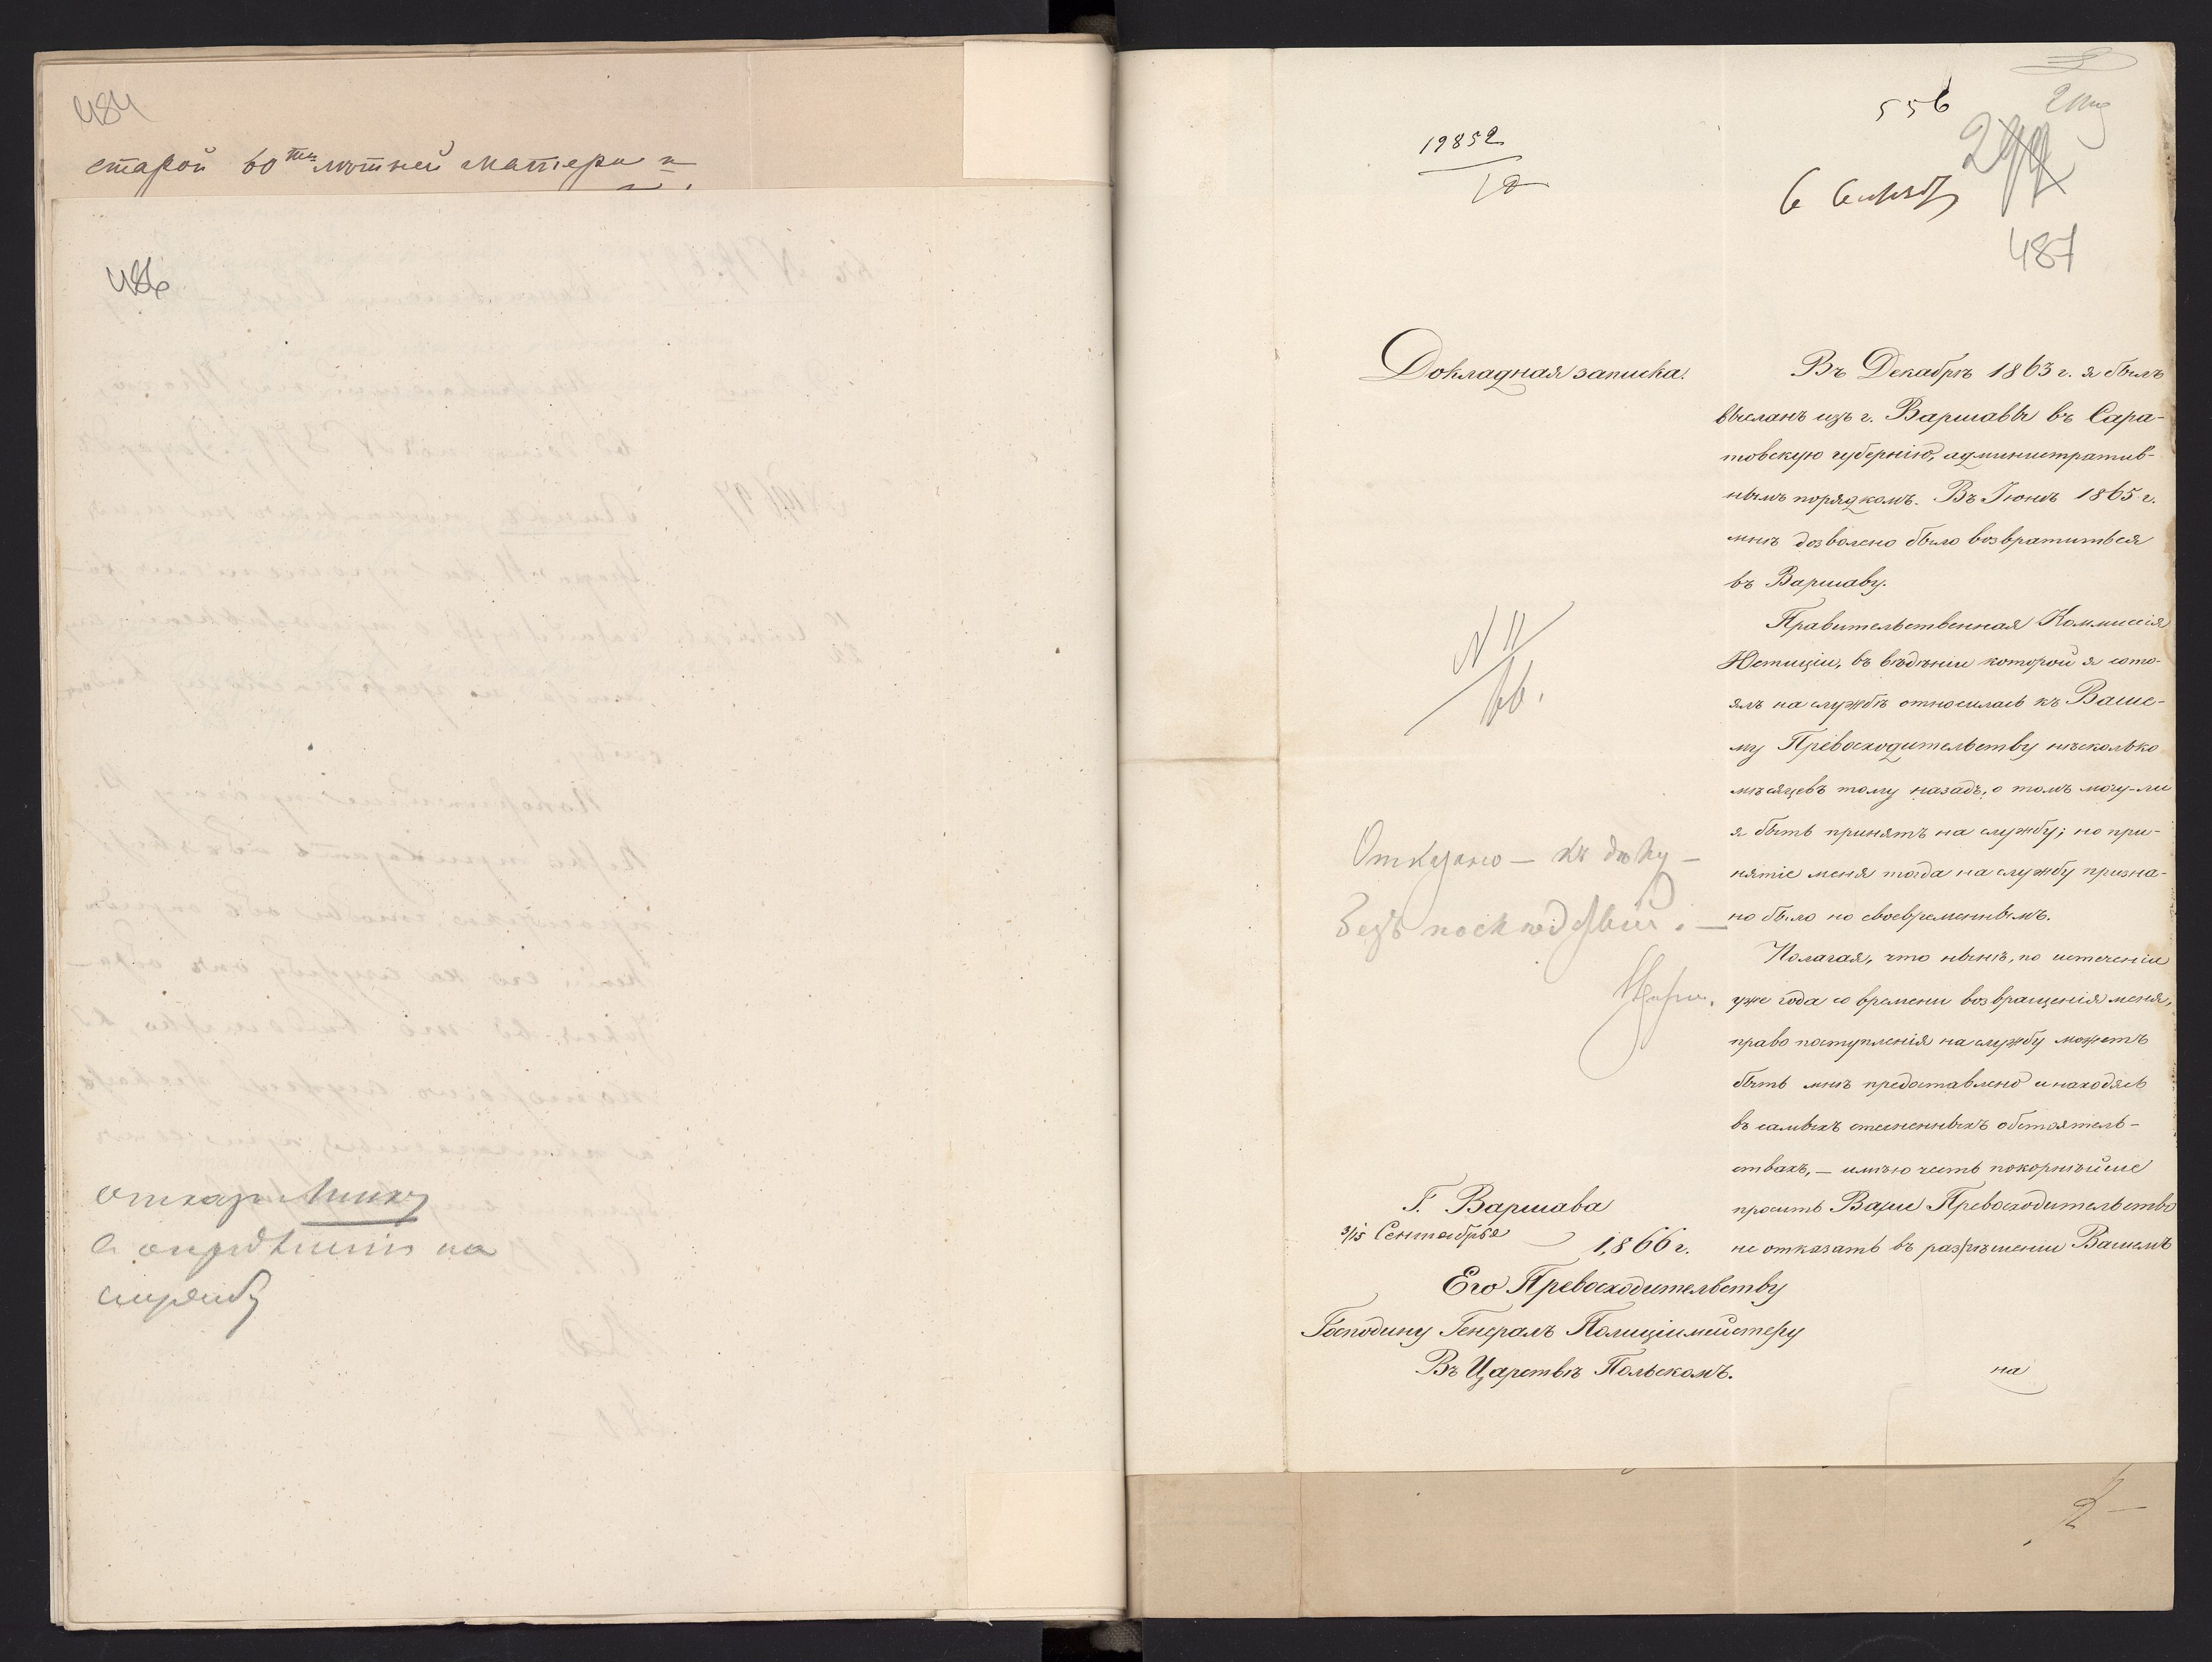 484
старой 60ти лѣтней матери и
486
отказъ
о опредѣленіи на
службу
556
19852
6 Сентяб
487
Докладная записка.
Въ Декабрѣ 1863 г. я былъ
высланъ изъ г. Варшавы въ Сара-
товскую губернію, административ-
нымъ порядкомъ. Въ Іюнѣ 1865 г.
мнѣ дозволено было возвратиться
въ Варшаву.
Правительственная Коммиссія
Юстиціи, въ вѣдѣніи которой я состо-
ялъ на службѣ относилась къ Ваше-
му Превосходительству нѣсколько
мѣсяцевъ тому назадъ, о томъ могу-ли
я быть принятъ на службу; но при-
нятіе меня тогда на службу призна-
но было не своевременнымъ.
Полагая, что нынѣ, по истеченіи
уже года со времени возвращенія меня,
право поступленія на службу можетъ
быть мнѣ предоставлено и находясь
въ самыхъ стесненныхъ обстоятель-
ствахъ, — имѣю честь покорнѣйше
просить Ваше Превосходительство
не отказать въ разрѣшеніи Вашемъ
на
N 11
66.
Отказано — къ дѣлу —
Безъ послѣдствій. —
Г. Варшава
3/15 Сентября
1866 г.
Его Превосходительству
Господину Генералъ Полиціймейстеру
Въ Царствѣ Польскомъ.